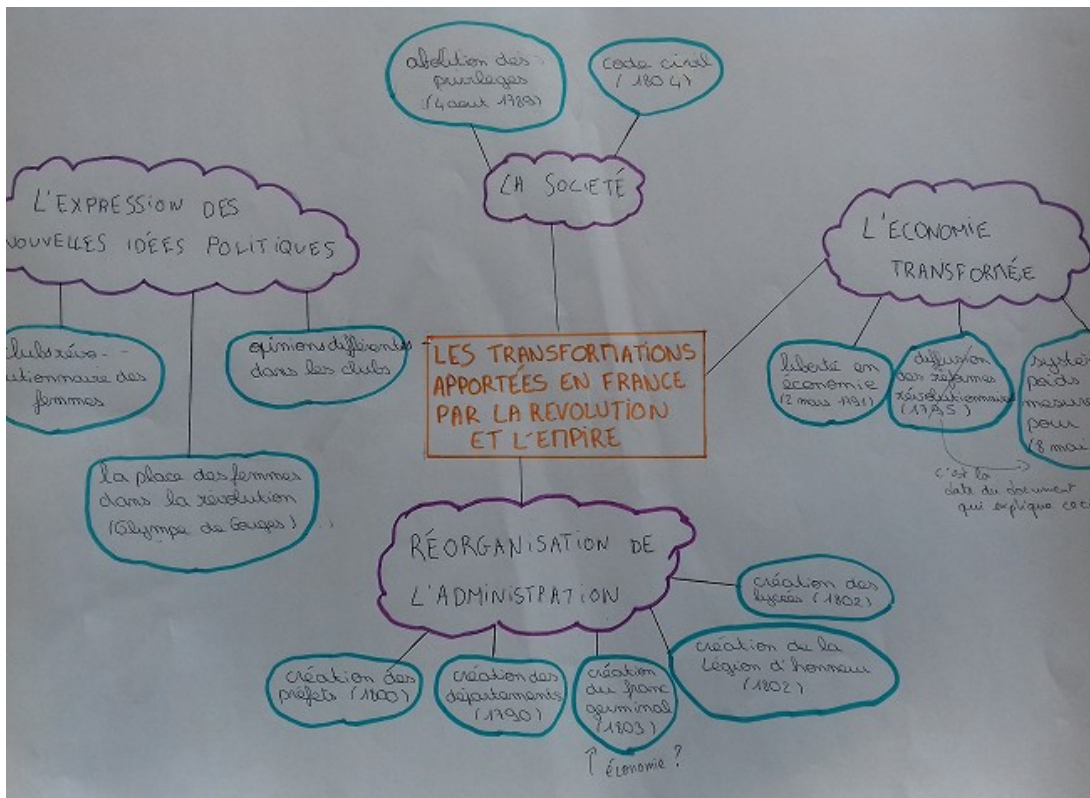 abolition des
privilèges
(4 aout 1789)
code civil
(1804)
LA SOCIETÉ
L'EXPRESSION DES
NOUVELLES IDÉES POLITIQUES
clubs révo-
utionnaire des
femmes
opinions différentes
dans les clubs
la place des femmes
dans la révolution
(Olympe de Gouges)
LES TRANSFORMATIONS
APPORTÉES EN FRANCE
PAR LA REVOLUTION
ET L'EMPIRE
L'ECONOMIE
TRANSFORMÉE
liberté en
économie
(2 mars 1791)
diffusion
des réformes
révolutionnaires
(1795)
systè
poids
mesure
pour
(8 mai
c'est la
date du document
qui explique cec
RÉORGANISATION DE
L'ADMINISTRATION
création des
lycées (1802)
création de la
Légion d'honneur
(1802)
création des
préfets (1800)
création des
départements
(1790)
création
du franc
germinal
(1803)
↑ économie ?